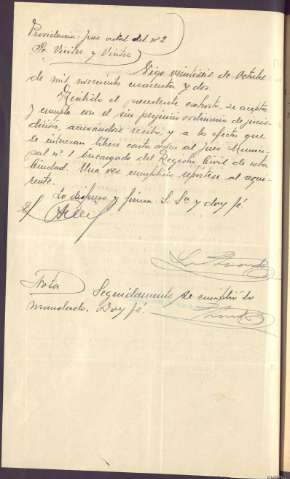 Providencia: Juez actal del nº 2
Sr. Vinites y Vinites
Vigo veintiséis de Octubre
de mil novecientos cuarenta y dos.
Recibido el precedente exhorto se acepta
y cumpla con el sin perjuicio ordinario de juris-
dicción, acusándose recibo, y a los efectos que
se interesan líbrese carta orden al Juez Munici-
pal nº 1 Encargado del Registro Civil de esta
Ciudad. Una vez cumplido repórtese al exho-
rtante.
Lo dispuso y firma S. Sª y doy fé
Nota Seguidamente se cumplió lo
mandado. Doy fé.